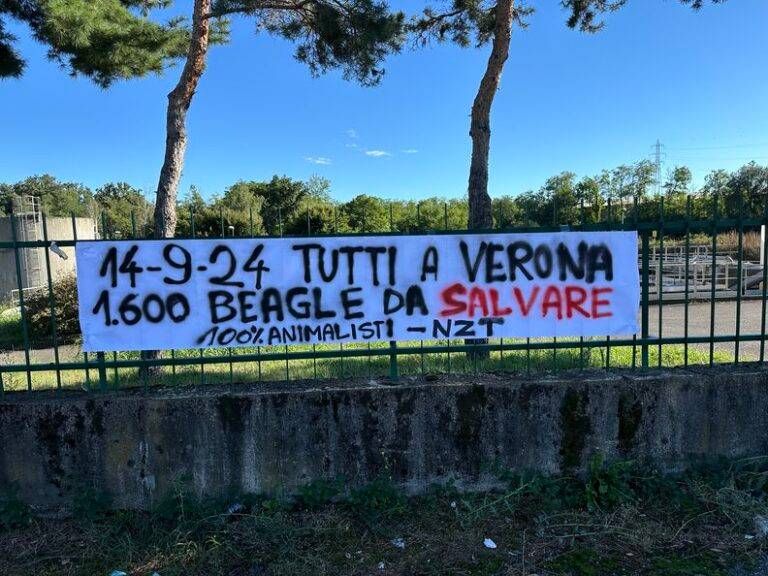 14-9-24 TUTTI A VERONA
1.600 BEAGLE DA SALVARE
100% ANIMALISTI - NZT